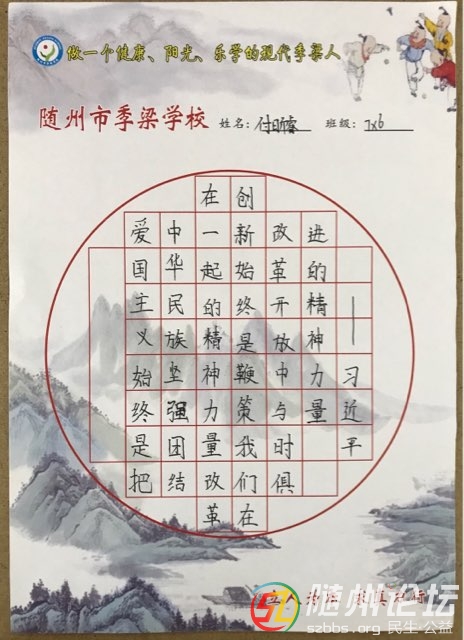 做一个健康、阳光、乐学的现代季梁人
随州市季梁学校 姓名：付昕睿 班级：
爱国主义始终是把
中华民族坚强团结
在一起的精神力量改革
创新始终是鞭策我们在
改革开放中与时俱
进的精神力量
——习近平
立人
随州论坛
szbbs.org 民生·公益